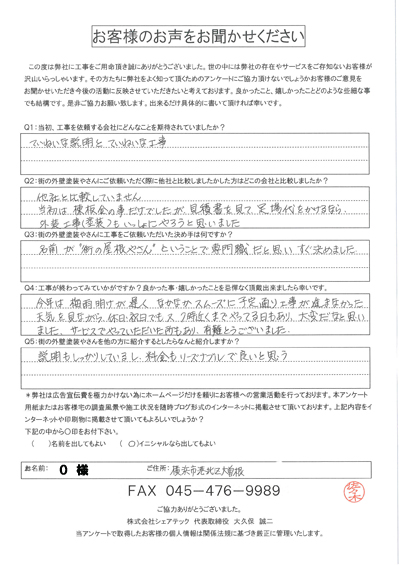 お客様のお声をお聞かせください
この度は弊社に工事をご用命頂き誠にありがとうございました。世の中には弊社の存在やサービスをご存知ないお客様が
沢山いらっしゃいます。その方たちに弊社をよく知って頂くためのアンケートにご協力頂けないでしょうかお客様のご意見を
お聞かせいただき今後の活動に反映させていただきたいと考えております。良かったこと、嬉しかったことどのような些細な事
でも結構です。是非ご協力お願い致します。出来るだけ具体的に書いて頂ければ幸いです。
Q1:当初、工事を依頼する会社にどんなことを期待されていましたか?
ていねいな説明と ていねいな工事
Q2:街の外壁塗装やさんにご依頼いただく際に他社と比較しましたかした方はどこの会社と比較しましたか?
他社と比較していません
当初は棟板金の事だけでしたが、見積書を見て、足場代をかけるなら、
外装工事(塗装)もいっしょにやろうと思いました
Q3:街の外壁塗装やさんに工事をご依頼いただいた決め手は何ですか?
名前が"街の屋根やさん"ということで専門職だと思い すぐ決めました
Q4:工事が終わってみていかがですか?良かった事・嬉しかったことを忌憚なく頂戴出来ましたら幸いです。
今年は梅雨明けが遅く なかなかスムーズに予定通り工事が進まなかった
天気を見ながら、休日・祝日でも 7時近くまでやってる日もあり、大変だなと思い
ました、サービスでやっていただいた所もあり、有難とうございました。
Q5:街の外壁塗装やさんを他の方に紹介するとしたらなんと紹介しますか?
説明もしっかりしているし、料金もリーズナブルで良いと思う
*弊社は広告宣伝費を極力かけない為にホームページだけを頼りにお客様への営業活動を行っております。本アンケート
用紙またはお客様宅の調査風景や施工状況を随時ブログ形式のインターネットに掲載させて頂いております。上記内容をイ
ンターネットや印刷物に掲載させて頂いてもよろしいでしょうか?
下記の中から〇印をお付下さい。
( )名前を出してもよい ( 〇 )イニシャルなら出してもよい
お名前: O 様 ご住所: 横浜市港北区大曽根
FAX 045-476-9989
ご協力ありがとうございました。
株式会社シェアテック 代表取締役 大久保 誠二
当アンケートで取得したお客様の個人情報は関係法規に基づき厳正に管理いたします。